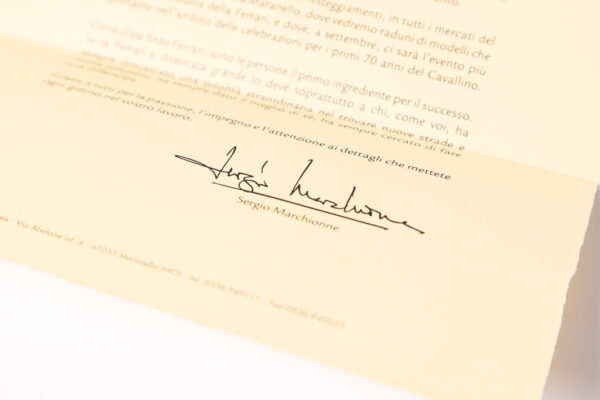 festeggiamenti, in tutti i mercati del
Maranello, dove vedremo raduni di modelli che
storia della Ferrari, e dove, a settembre, ci sarà l'evento più
importante nell'ambito delle celebrazioni per i primi 70 anni del Cavallino.
Come disse Enzo Ferrari, sono le persone il primo ingrediente per il successo.
Se la Ferrari è diventata grande lo deve soprattutto a chi, come voi, ha
sempre dimostrato una volontà straordinaria nel trovare nuove strade e
nuove soluzioni, ha sempre dato il meglio di sé, ha sempre cercato di fare
la differenza.
Grazie a tutti per la passione, l'impegno e l'attenzione ai dettagli che mettete
ogni giorno nel vostro lavoro.
Sergio Marchionne
Sergio Marchionne
Via Abetone inf. 4 - 41053 Maranello (MO) - Tel. 0536 949111 - Fax 0536